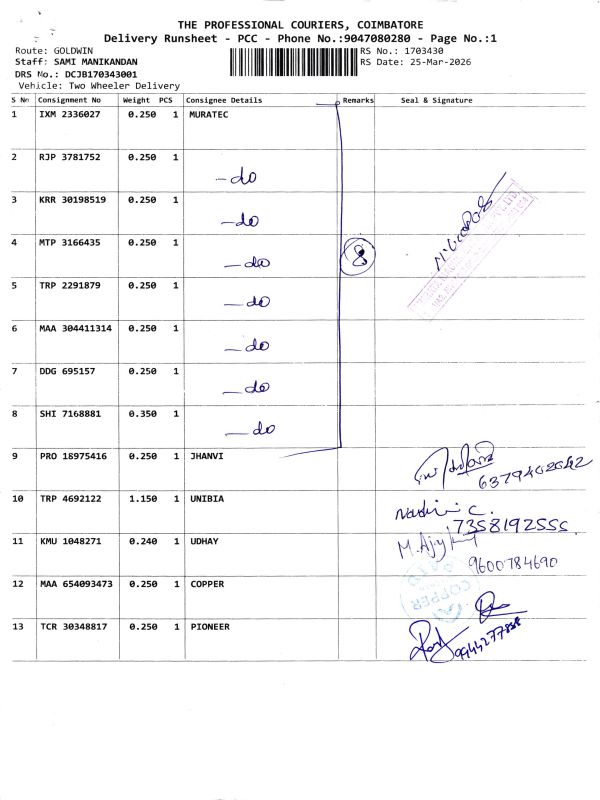 THE PROFESSIONAL COURIERS, COIMBATORE
Delivery Runsheet - PCC - Phone No.:9047080280 - Page No.:1
Route: GOLDWIN
Staff: SAMI MANIKANDAN
DRS No.: DCJB170343001
Vehicle: Two Wheeler Delivery
RS No.: 1703430
RS Date: 25-Mar-2026
S No Consignment No Weight PCS Consignee Details Remarks Seal & Signature
1 IXM 2336027 0.250 1 MURATEC
2 RJP 3781752 0.250 1 -do
3 KRR 30198519 0.250 1 -do
4 MTP 3166435 0.250 1 -do 8
5 TRP 2291879 0.250 1 -do
6 MAA 304411314 0.250 1 -do
7 DDG 695157 0.250 1 -do
8 SHI 7168881 0.350 1 -do
9 PRO 18975416 0.250 1 JHANVI
6379402642
10 TRP 4692122 1.150 1 UNIBIA
C.
7358192555
11 KMU 1048271 0.240 1 UDHAY M.Ajay
9600784690
12 MAA 654093473 0.250 1 COPPER
COPPER
13 TCR 30348817 0.250 1 PIONEER